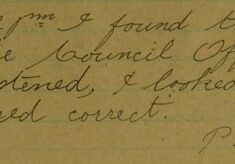 pm I found t
e Council Off
stened, & looked
ed correct.
P.